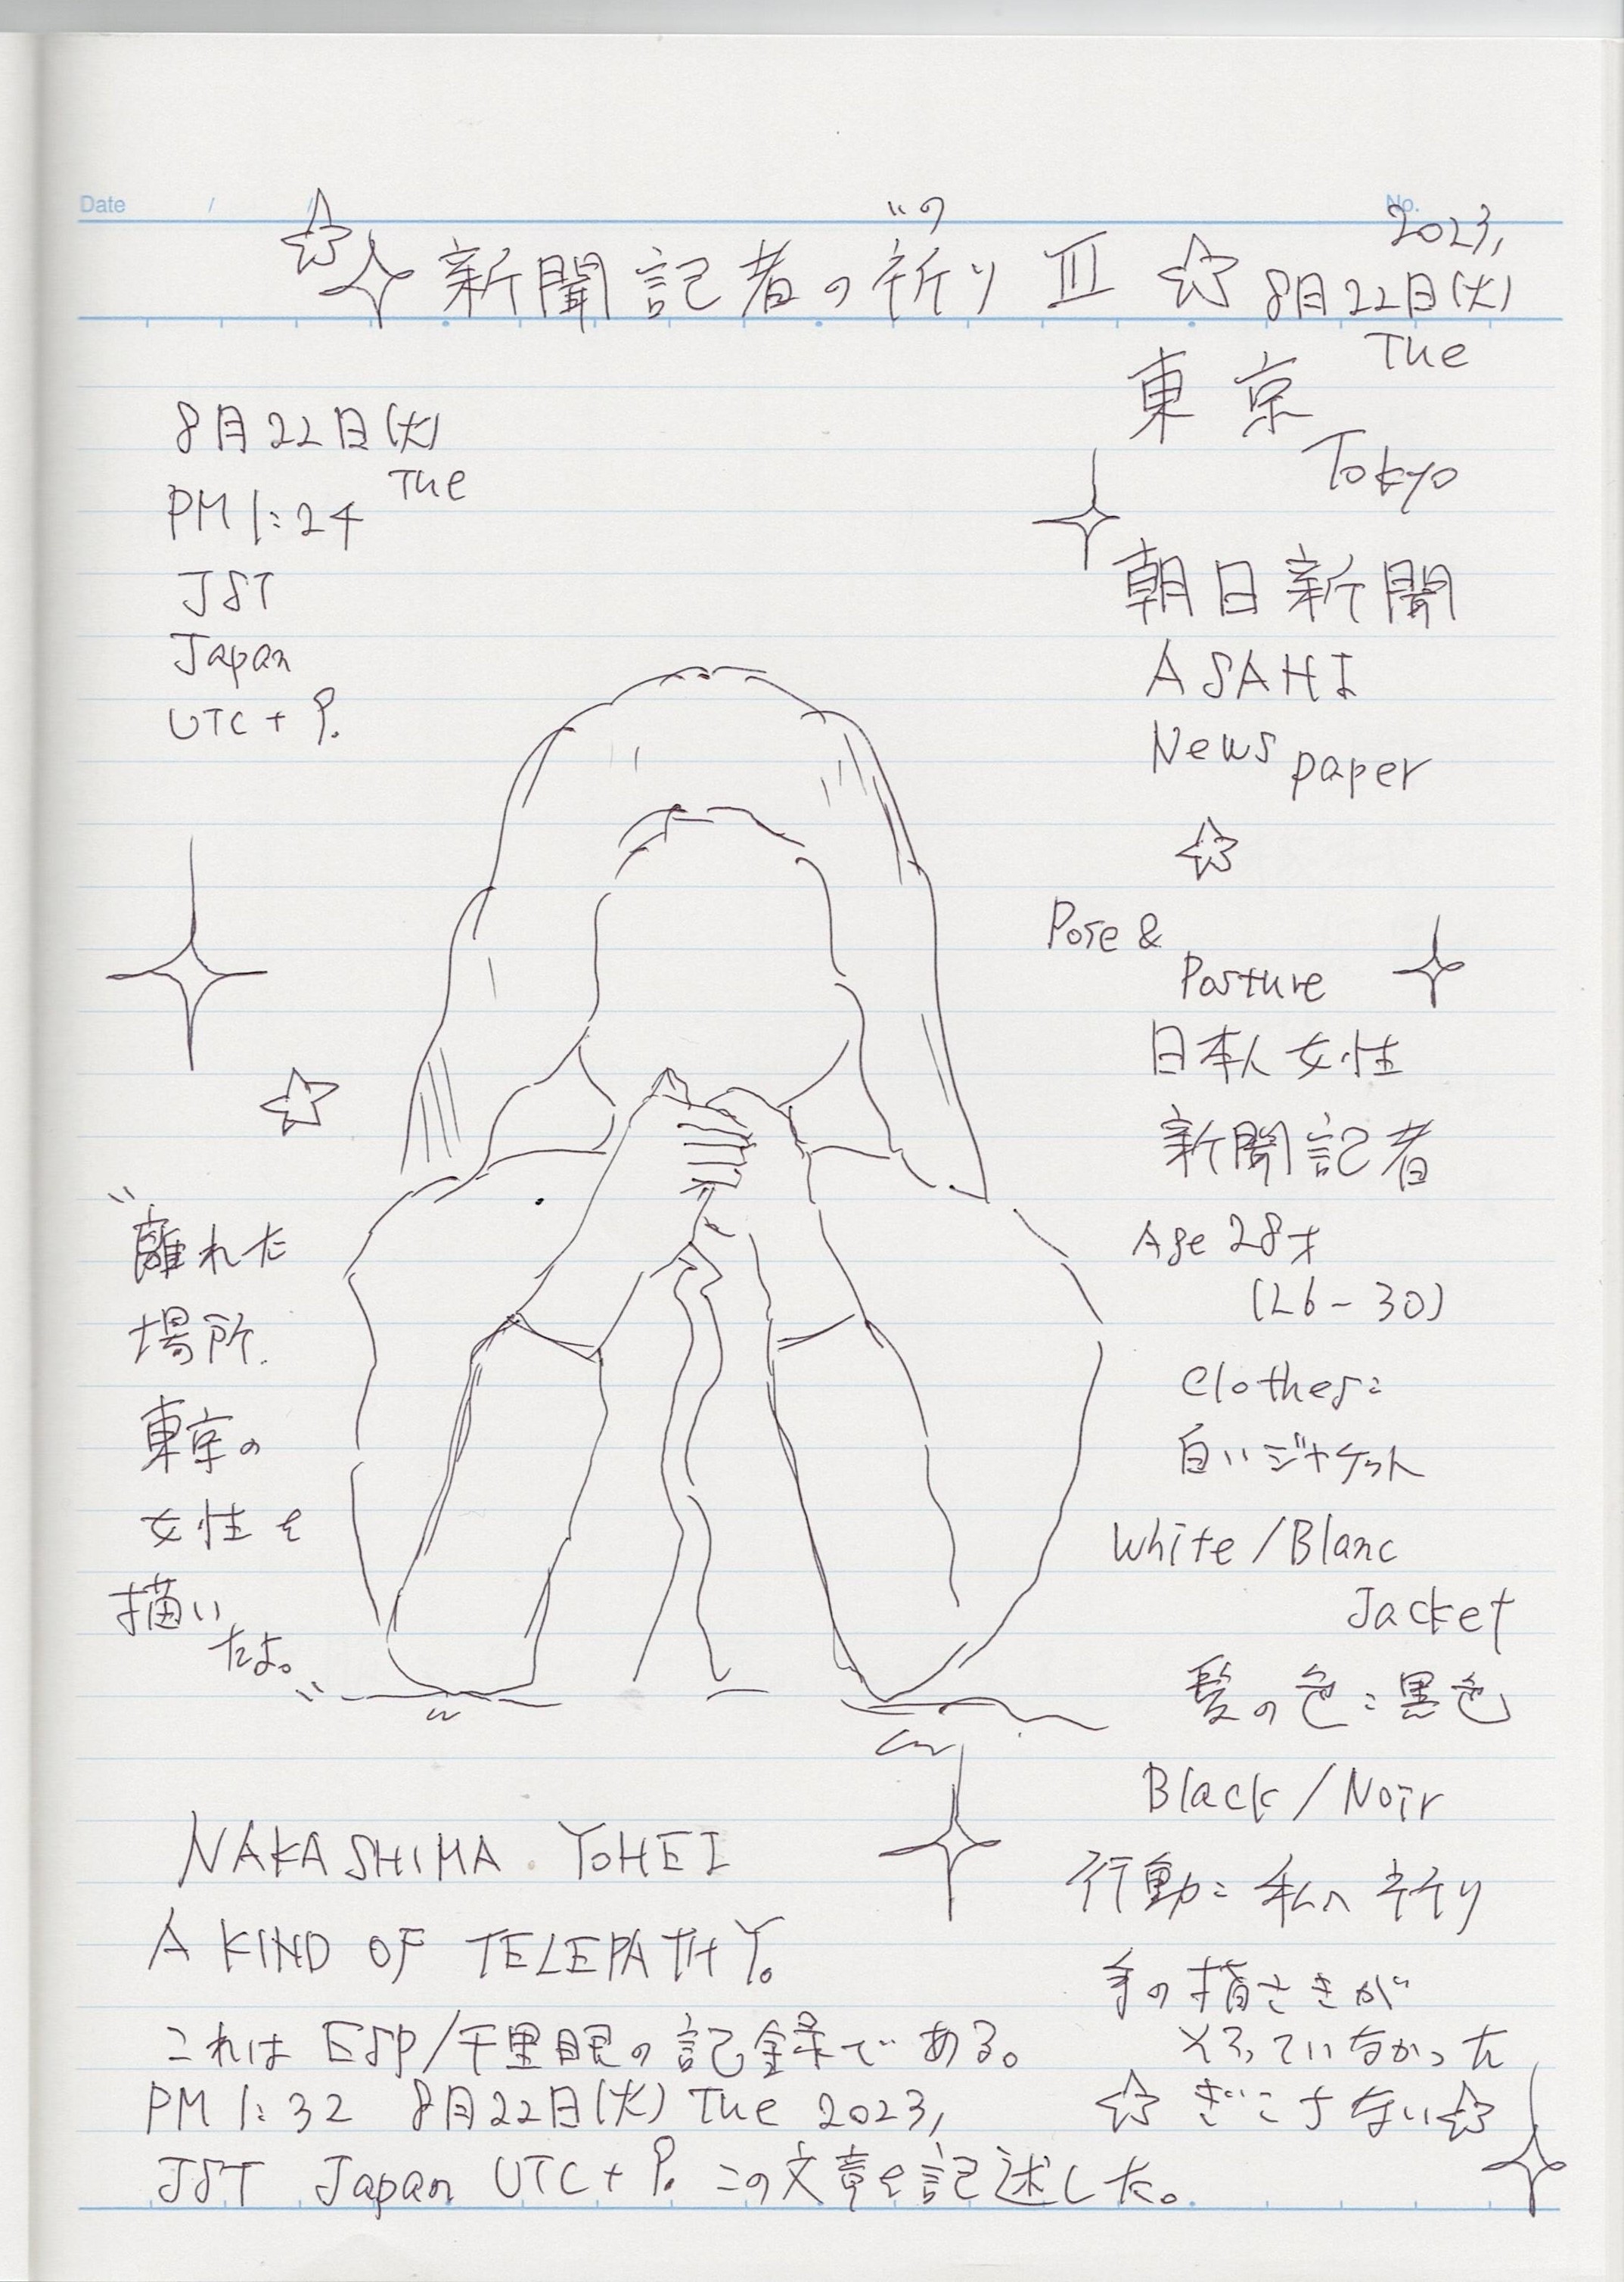 Date / /
No.
2023,
"の
新聞記者の祈り Ⅲ
8月22日(火)
Tue
東京
Tokyo
8月22日(火)
Tue
PM 1:24
JST
Japan
UTC + 9.
朝日新聞
ASAHI
News paper
Pose &
Posture
日本人女性
新聞記者
Age 28才
(26-30)
Clothes:
白いジャケット
White/Blanc
Jacket
髪の色:黒色
Black/Noir
行動:私へ祈り
手の指さきが
そろっていなかった
ぎこちない
"離れた
場所.
東京の
女性を
描い
たよ。"
NAKASHIMA YOHEI
A KIND OF TELEPATHY.
これは ESP/千里眼の記録である。
PM 1:32 8月22日(火) Tue 2023,
JST Japan UTC + 9. この文章を記述した。